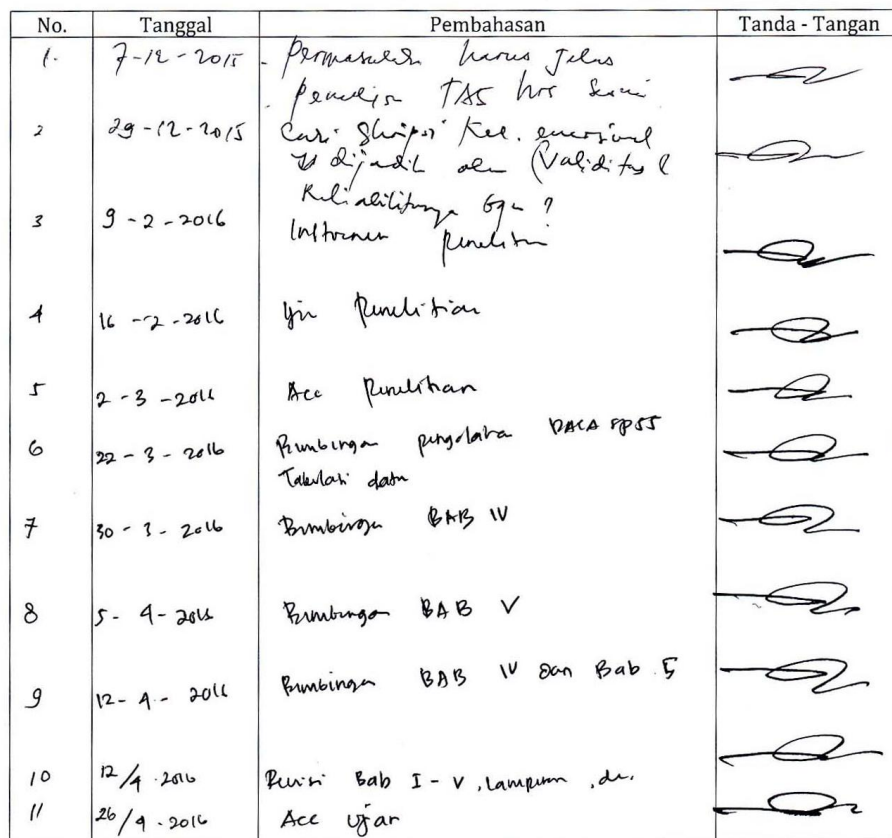 No. Tanggal Pembahasan Tanda - Tangan
1. 7-12-2015 - Permasalah harus jelas
TAS hrs
2 29-12-2015 Cari Skripsi Kec. emosional
(Validitas &
Reliabilitasnya ?
3 9-2-2016 Instrumen Penelitian
4 16-2-2016 Ijin Penelitian
5 2-3-2016 Acc Penelitian
6 22-3-2016 Bimbingan pengolahan DATA SPSS
Tabulasi data
7 30-3-2016 Bimbingan BAB IV
8 5-4-2016 Bimbingan BAB V
9 12-4-2016 Bimbingan BAB IV dan Bab 5
10 12/4.2016 Revisi Bab I - V, lampiran,
11 26/4.2016 Acc ujian